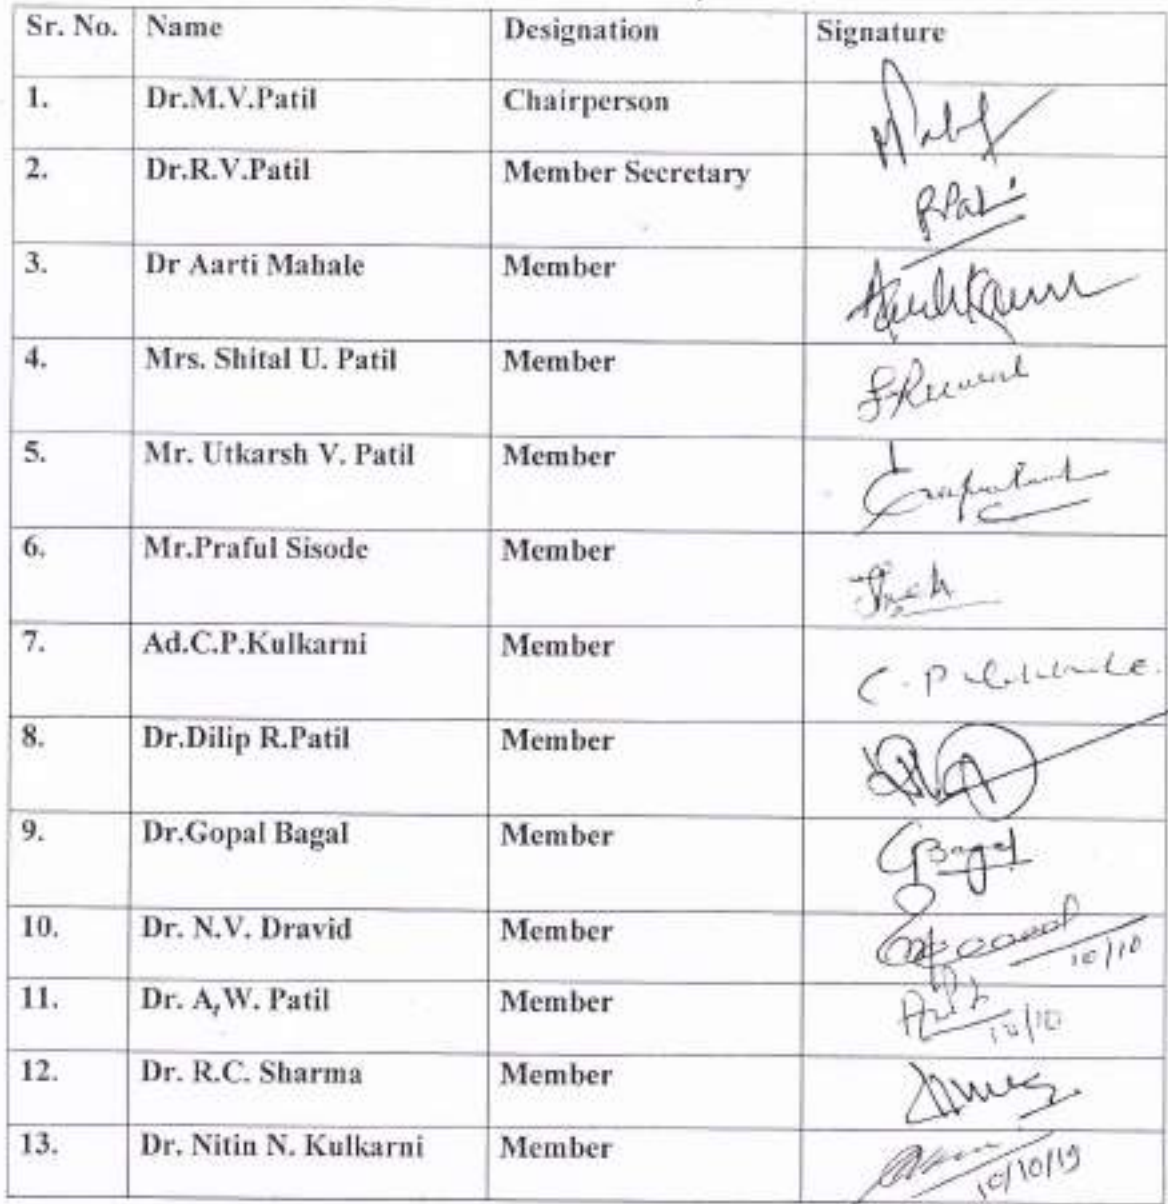 Sr. No. Name Designation Signature
1. Dr.M.V.Patil Chairperson
2. Dr.R.V.Patil Member Secretary
3. Dr Aarti Mahale Member
4. Mrs. Shital U. Patil Member
5. Mr. Utkarsh V. Patil Member
6. Mr.Praful Sisode Member
7. Ad.C.P.Kulkarni Member C. P
8. Dr.Dilip R.Patil Member
9. Dr.Gopal Bagal Member GBagal
10. Dr. N.V. Dravid Member 10/10
11. Dr. A,W. Patil Member 10/10
12. Dr. R.C. Sharma Member
13. Dr. Nitin N. Kulkarni Member 10/10/19